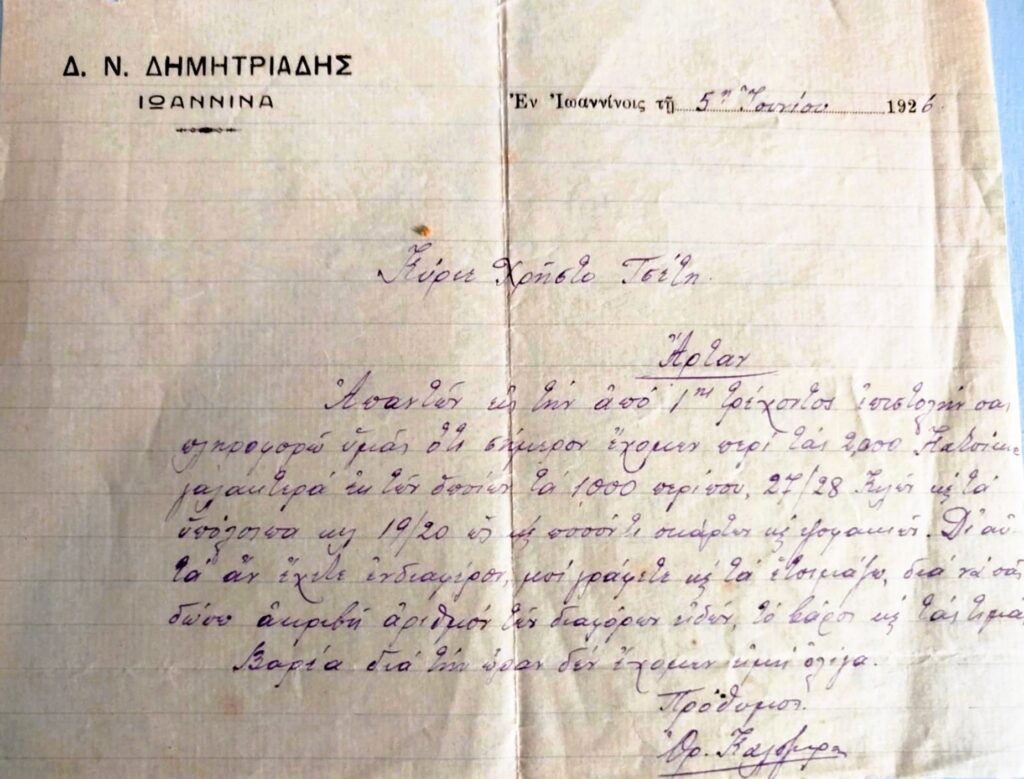 Δ. Ν. ΔΗΜΗΤΡΙΑΔΗΣ
ΙΩΑΝΝΙΝΑ
Ἐν Ἰωαννίνοις τῇ 5η Ἰουνίου 1926
Κύριε Χρῆστο Τσέτη.
Ἄρταν
Ἀπαντῶν εἰς τὴν ἀπὸ 1ης τρέχοντος ἐπιστολήν σας
πληροφορῶ ὑμᾶς ὅτι σήμερον ἔχομεν περὶ τὰς 2000
γαλακτερά ἐκ τῶν ὁποίων τὰ 1000 περίπου, 27/28 κ τὰ
ὑπόλοιπα 19/20 ὡς κ. Δι' αὐ-
τὰ ἂν ἔχετε ἐνδιαφέρον, μοὶ γράφετε κ τὰ ἑτοιμάζω, διὰ νὰ σᾶς
δώσω ἀκριβῆ ἀριθμὸν τῶν διαφόρων εἰδῶν, τὸ βάρος κ τὰς τιμάς
Βαρέα διὰ τὴν ὥραν δὲν ἔχομεν εἰμὴ ὀλίγα.
Πρόθυμος